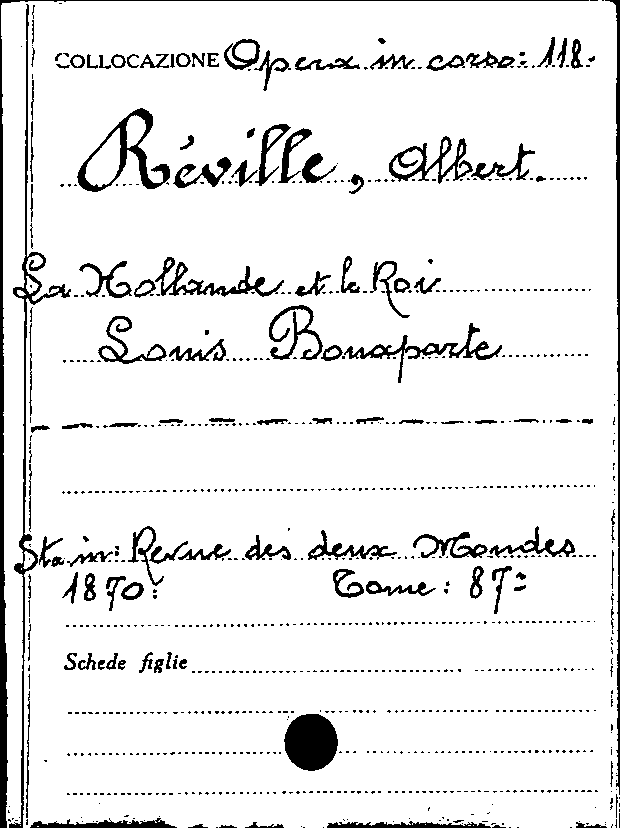 COLLOCAZIONE Opera in corso: 118.
Réville, Albert.
La Hollande et le Roi
Louis Bonaparte
Sta in: Revue des deux Mondes
1870: Tome: 87=
Schede figlie